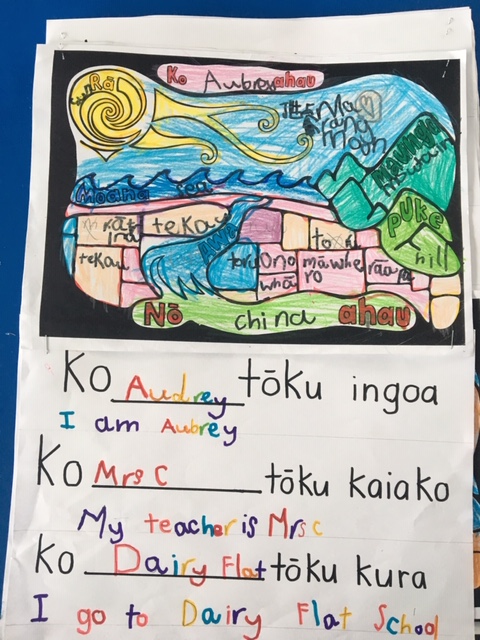 Ko Aubrey ahau
Rā
sun
Marama
moon
Maunga
mountain
Moana sea
Puke
hill
tekau
Awa
tekau
toru Ono
whā
māwhe
ro
Nō china ahau
Ko Audrey tōku ingoa
I am Aubrey
Ko Mrs C tōku kaiako
My teacher is Mrs C
Ko Dairy Flat tōku kura
I go to Dairy Flat School